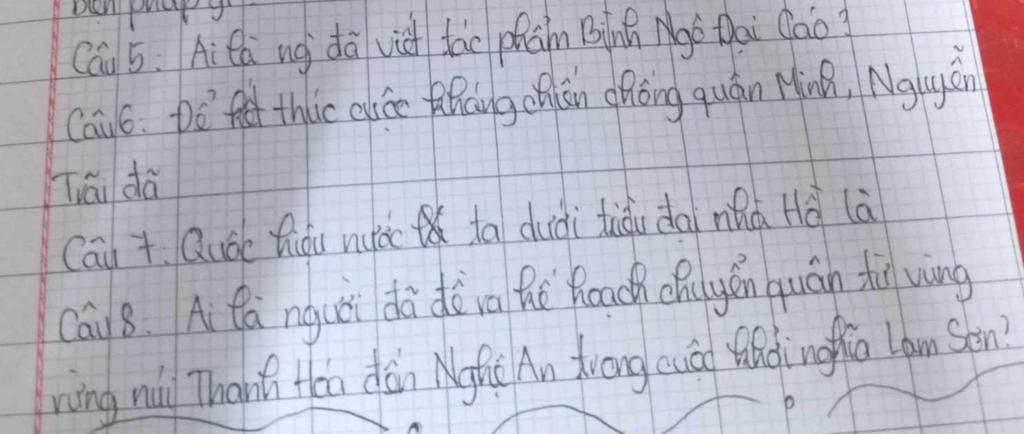 biện pháp gì
Câu 5: Ai là ng đã viết tác phẩm Bình Ngô Đại Cáo?
Câu 6: Để kết thúc cuộc kháng chiến chống quân Minh, Nguyễn
Trãi đã
Câu 7. Quốc hiệu nước ta dưới triều đại nhà Hồ là
Câu 8. Ai là người đã đề ra kế hoạch chuyển quân từ vùng
rừng núi Thanh Hóa đến Nghệ An trong cuộc khởi nghĩa Lam Sơn?